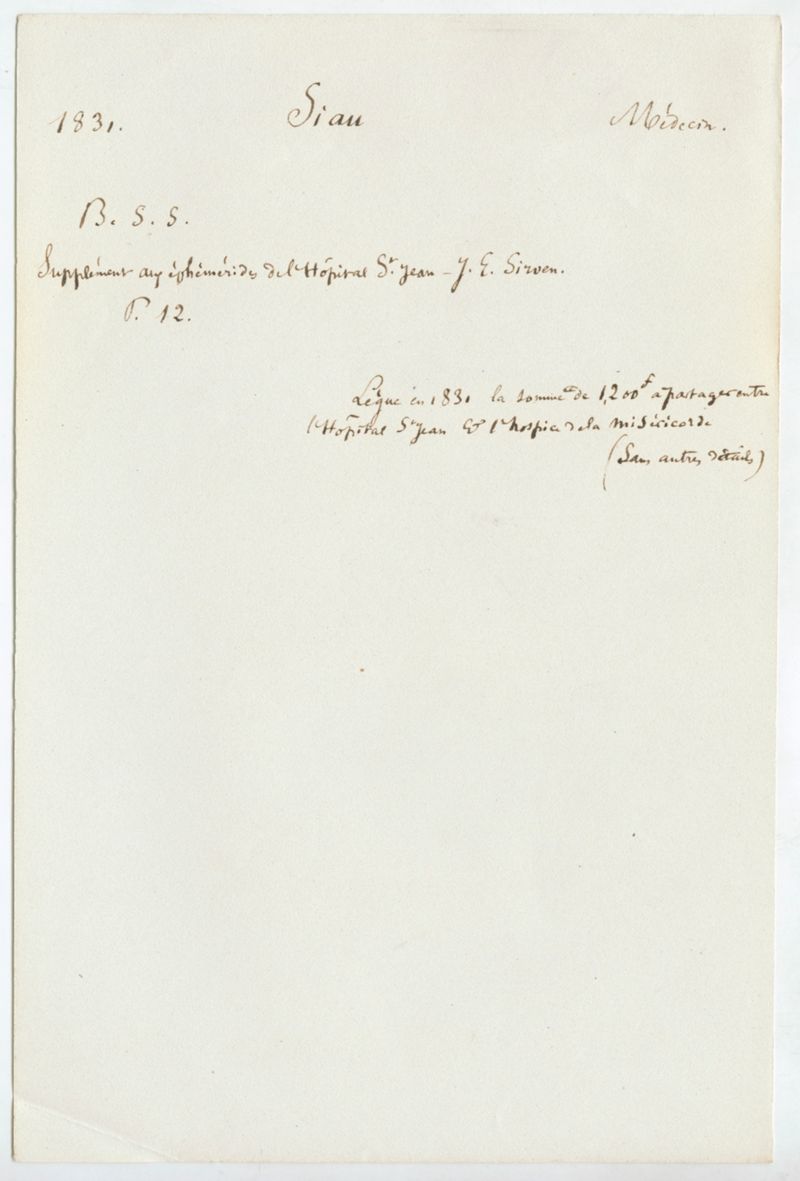 1831. Siau Médecin.
B. S. S.
Supplément aux éphémérides de l'Hôpital St Jean - J. E. Sirven.
P. 12.
Lègue en 1831 la somme de 1,200f à partager entre
l'Hôpital St Jean & l'hospice de la miséricorde
(Sans autres détails)